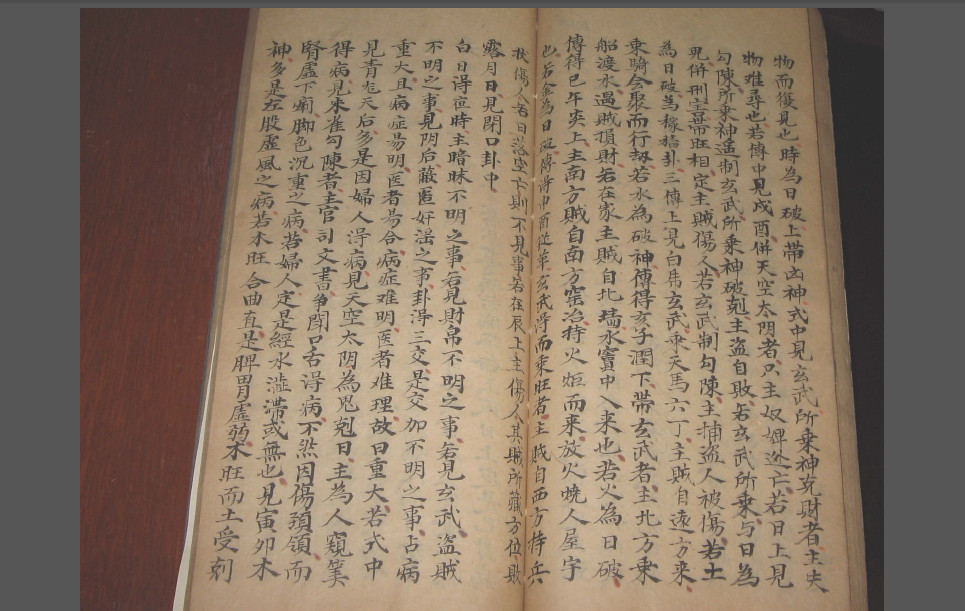 物而復見也時為日破上帶凶神式中見玄武所乘神克財者主失
物难尋也若傳中見戌酉併天空太阴者只主奴婢逊亡若日上見
勾陳所乘神遥制玄武所乘神破剋主盗自敗若玄武所乘与日為
鬼併刑害帶旺相定主賊傷人若玄武制勾陳主捕盗人被傷若土
為日破為稼穑卦三傳上見白虎玄武乘天馬六丁主賊自遠方來
乘騎会聚而行刼若水為破神傳得亥子潤下帶玄武者主北方乘
船渡水過賊損財若在家主賊自北墙水竇中入来也若火為日破
傳得巳午炎上主南方賊自南方窑冶持火炬而来放火燒人屋宇
也若金為日破傳得申酉從革玄武得而乘旺者主賊自西方持兵
杖傷人若日落空亡則不見事若在辰上主傷人其賊所藏方位敗
露月日見閉口卦中
白日得夜時主暗昧不明之事若見財帛不明之事若見玄武盗賊
不明之事見阴后蔽匿奸淫之事卦得三交是交加不明之事占病
重大且病症易明医者易合病症难明医者难理故曰重大若式中
見青龙天后多是因婦人得病見天空太阴為鬼剋日主為人窺筭
得病見朱雀勾陳者主官司文書争鬭口舌得病不然因傷頭領而
腎虛下痢脚色沉重之病若婦人定是經水澁滯或無也見寅夘木
神多是左股虛風之病若木旺合曲直是脾胃虛弱木旺而土受刻